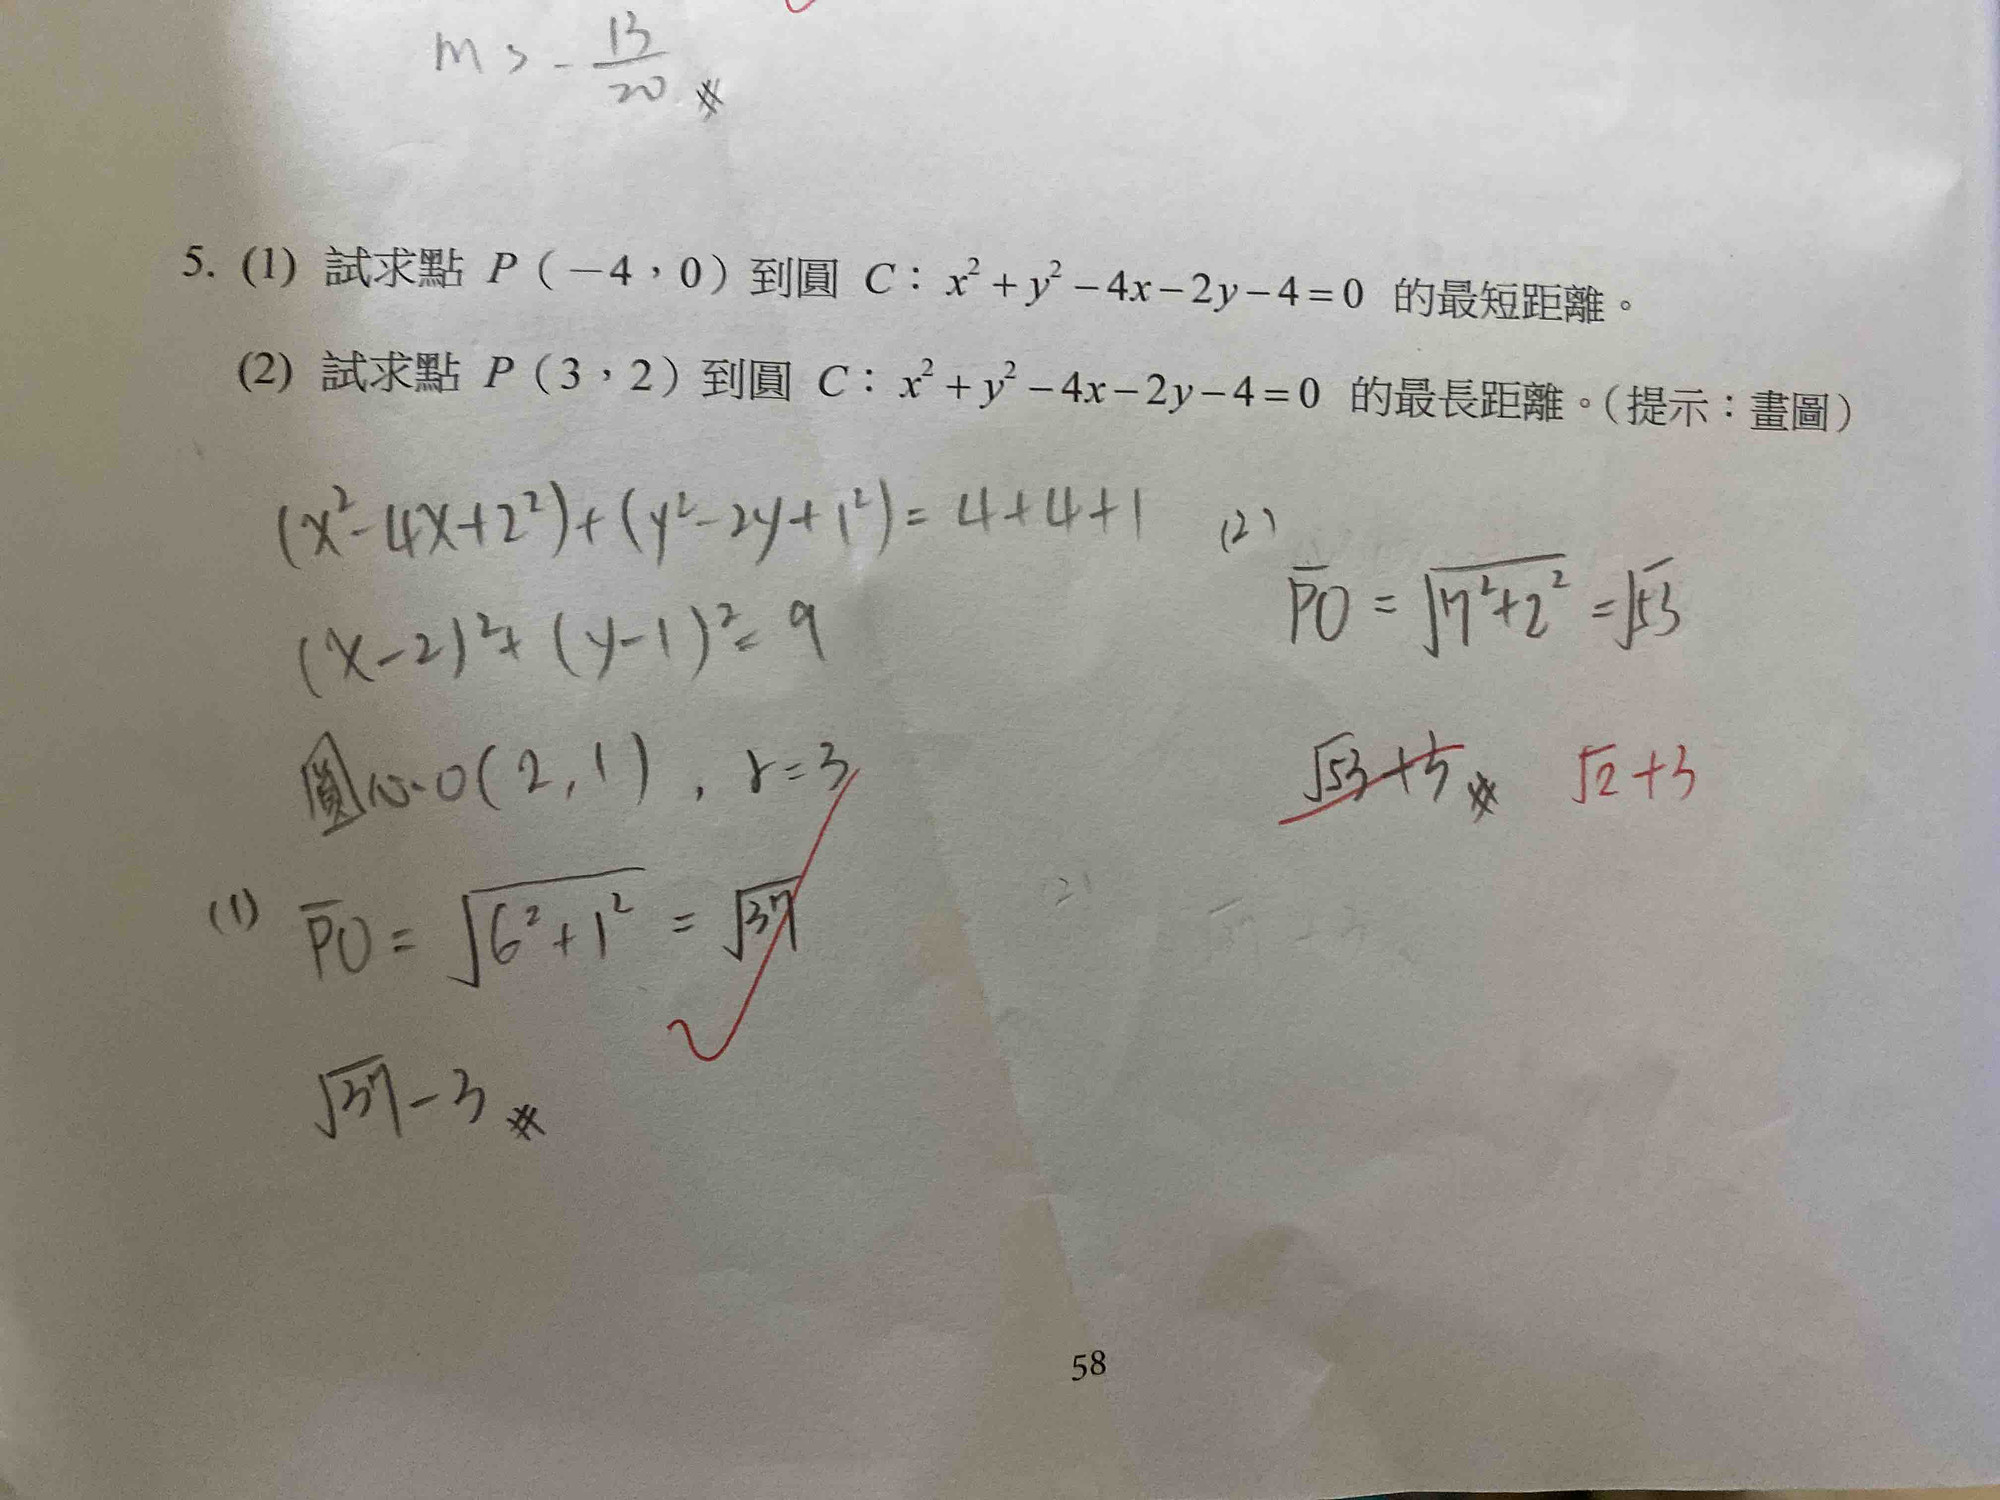 m > - 13/20 #
5. (1) 試求點 P（－4，0）到圓 C：x²+y²−4x−2y−4=0 的最短距離。
(2) 試求點 P（3，2）到圓 C：x²+y²−4x−2y−4=0 的最長距離。（提示：畫圖）
(x²-4x+2²)+(y²-2y+1²)=4+4+1
(x-2)²+(y-1)²=9
圓心O(2,1), r=3
(1) P̅O̅ = √(6²+1²) = √37
√37-3 #
(2)
P̅O̅ = √(7²+2²) = √53
√53+3 # √2+3
58